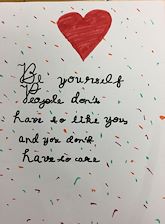 Be yourself
People don't
have to like you,
and you don't
have to care